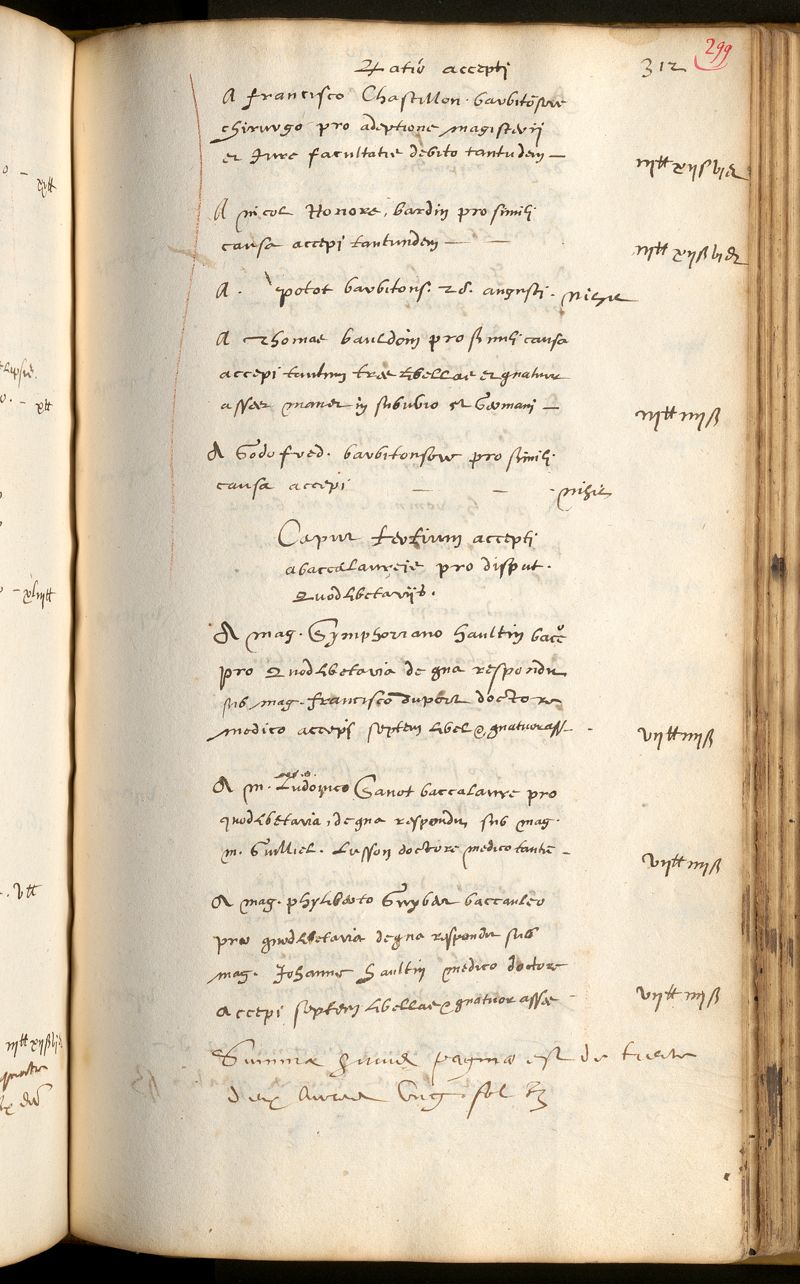 299
Ratio accepti 312
A francisco Chastillon barbitōsore
chirurgo pro adeptione magisterii
et Jure facultatis debito tantūdem — iiiitt xiiß viđ
A nicol Honore, bardin pro simili
causa accepi tantundem — — iiiitt xiiß viđ
A. potot barbitons. 28. augusti. nihil
A Thomae bauldoin pro simili causa
accepi tantum tres libellas et quatuor
asses manet in suburbio st Germani — iiitt iiiiß
A Godofred. barbitonsore pro simili
causa accepi — — nihil
Caput tertium accepti
a baccalaureis pro disput.
Quodlibetariis.
A mag. Symphoriano haultin bacc
pro Quodlibetaria de qua respondit
sub mag. francisco dupert doctore
medico accepi septem libel & quatuor ass. viitt iiiiß
A m. Ludovico Sanot baccalaure pro
quodlibetaria, de qua respondit sub mag.
m. Guilliel. Lusson doctore medico tantū — viitt iiiiß
A mag. phyliberto Guyber baccauleo
pro quodlibetaria de qua respondit sub
mag. Johanne haultin medico doctore
accepi septem libellas & quatuor asses viitt iiiiß
Summa huius paginae est de trente
deux livres cinq solz